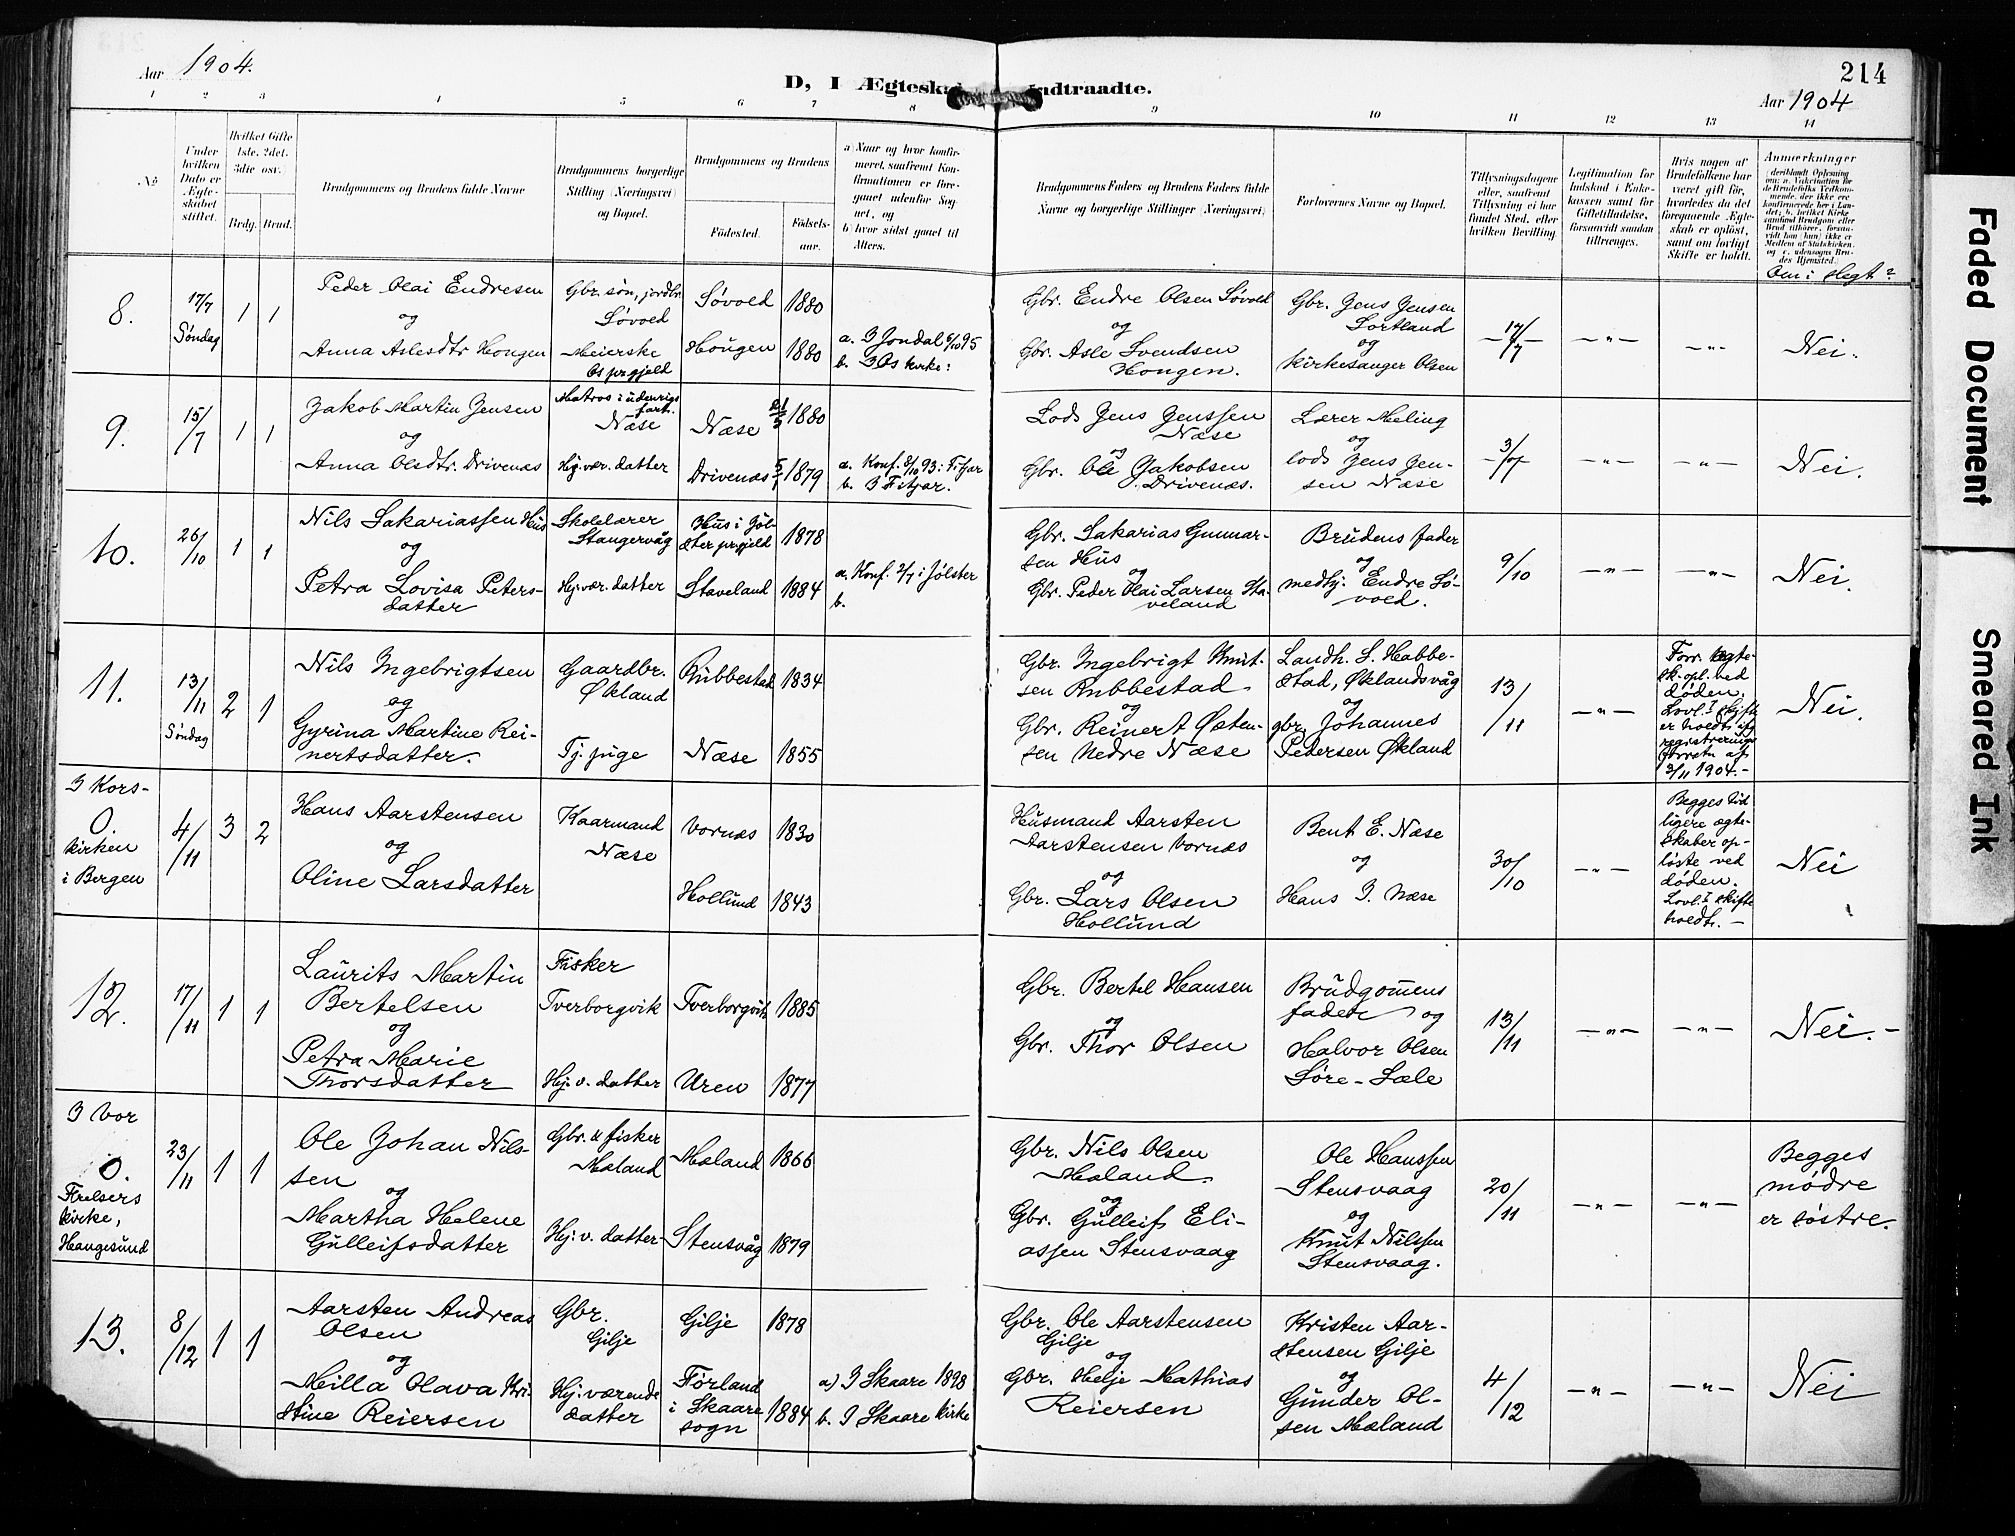 Aar 1904.
D, I Ægteskab Indtraadte.
214
Aar 1904
1 2 3 4 5 6 7 8 9 10 11 12 13 14
No
Under hvilken Dato er Ægteskabet stiftet.
Hvilket Gifte 1ste, 2det, 3die osv.
Brdg. Brud.
Brudgommens og Brudens fulde Navne
Brudgommens borgerlige Stilling (Næringsvei) og Bopæl.
Brudgommens og Brudens
Fødested.
Fødselsaar.
a) Naar og hvor konfirmeret, saafremt Konfirmationen er foregaaet udenfor Sognet, og
b) hvor sidst gaaet til Alters.
Brudgommens Faders og Brudens Faders fulde Navne og borgerlige Stillinger (Næringsvei)
Forlovernes Navne og Bopæl.
Tillysningsdagene eller, saafremt Tillysning ei har fundet Sted, efter hvilken Bevilling
Legitimation for Indskud i Enkekassen samt for Giftetilladelse, forsaavidt saadan tiltrænges.
Hvis nogen af Brudefolkene har været gift før, hvorledes da det foregaaende Ægteskab er opløst, samt om lovligt Skifte er holdt.
Anmærkninger
Om i slegt?
8.
17/7
Søndag
1 1
Peder Olai Endresen
og
Anna Aslesdtr Hougen
Gbr. søn, jordbr.
Søvold
Meierske
Os prgjeld
Søvold 1880
Hougen 1880
a. I Jondal 6/10 95
b. I Os kirke:
Gbr. Endre Olsen Søvold
og
Gbr. Asle Svendsen
Hougen.
Gbr. Jens Jensen
Sortland
og
Kirkesanger Olsen
17/7
— " —
— " —
Nei.
9.
15/7
1 1
Jakob Martin Jensen
og
Anna Olsdtr. Drivenæs
Matros i udenrigs
fart.
Næse
Hj. vær. datter
Næse 1880
Drivenæs 1879
a. Konf. 8/10 93 i Fitjar
b. I Fitjar.
Lods Jens Jenssen
Næse
og
Gbr. Ole Jakobsen
Drivenæs.
Lærer Meling
og
lods Jens Jensen
Næse
3/7
— " —
— " —
Nei.
10.
26/10
1 1
Nils Sakariassen Hus
og
Petra Lovisa Petersdatter
Skolelærer
Stangervåg
Hj. vær. datter
Hus i Jølster prgjeld 1878
Staveland 1884
a. Konf. 2/7 i Jølster
b.
Gbr. Sakarias Gunnarsen
Hus
og
Gbr. Peder Olai Larsen Staveland
Brudens fader
og
medhj. Endre Søvold.
9/10
— " —
— " —
Nei.
11.
13/11
Søndag
2 1
Nils Ingebrigtsen
og
Gyrina Martine Reinertsdatter.
Gaardbr.
Økland
Tj. pige
Rubbestad 1834
Næse 1855
Gbr. Ingebrigt Knutsen
Rubbestad
og
Gbr. Reinert Østensen
Nedre Næse
Landh. S. Habbestad,
Øklandsvåg
og
gbr. Johannes
Pedersen Økland
13/11
— " —
Forr. ægtesk.
opl. ved
døden.
Lovl. skifte
er holdt
registrerings
forretn. af
3/11 1904. —
Nei.
I Kors-
0
kirken
i Bergen
4/11
3 2
Hans Aarstensen
og
Oline Larsdatter
Kaarmand
Næse
Vornæs 1830
Hollund 1843
Husmand Aarsten
Aarstensen Vornæs
og
Gbr. Lars Olsen
Hollund
Bent E. Næse
og
Hans I. Næse
30/10
— " —
Begges tidligere
ægteskaber
opløste ved
døden.
Lovl. skifte
holdt. —
Nei
12.
17/11
1 1
Laurits Martin
Bertelsen
og
Petra Marie
Thorsdatter
Fisker
Tverborgvik
Hj. v. datter
Tverborgvik 1885
Uren 1877
Gbr. Bertel Hansen
og
Gbr. Thor Olsen
Brudgomens
fader og
Halvor Olsen
Søre-Sæle
13/11
— " —
— " —
Nei. —
I Vor
0.
Frelsers
kirke,
Haugesund
23/11
1 1
Ole Johan Nilssen
og
Martha Helene
Gulleifsdatter
Gbr. & fisker
Mæland
Hj. v. datter
Mæland 1866
Stensvåg 1879
Gbr. Nils Olsen
Mæland
og
Gbr. Gulleif Eliassen
Stensvaag
Ole Hanssen
Stensvaag
og
Knut Nilssen
Stensvaag.
20/11
— " —
— " —
Begges
mødre
er søstre.
13.
8/12
1 1
Aarsten Andreas
Olsen
og
Milla Olava Kristine
Reiersen
Gbr.
Gilje
Hj. værende
datter
Gilje 1878
Førland
i Skaare
sogn 1884
a) I Skaare 1898
b. I Skaare kirke
Gbr. Ole Aarstensen
Gilje
og
Gbr. Helje Mathias
Reiersen
Kristen Aarstensen
Gilje
og
Gunder Olsen
Mæland
4/12
— " —
— " —
Nei
Faded Document
Smeared Ink